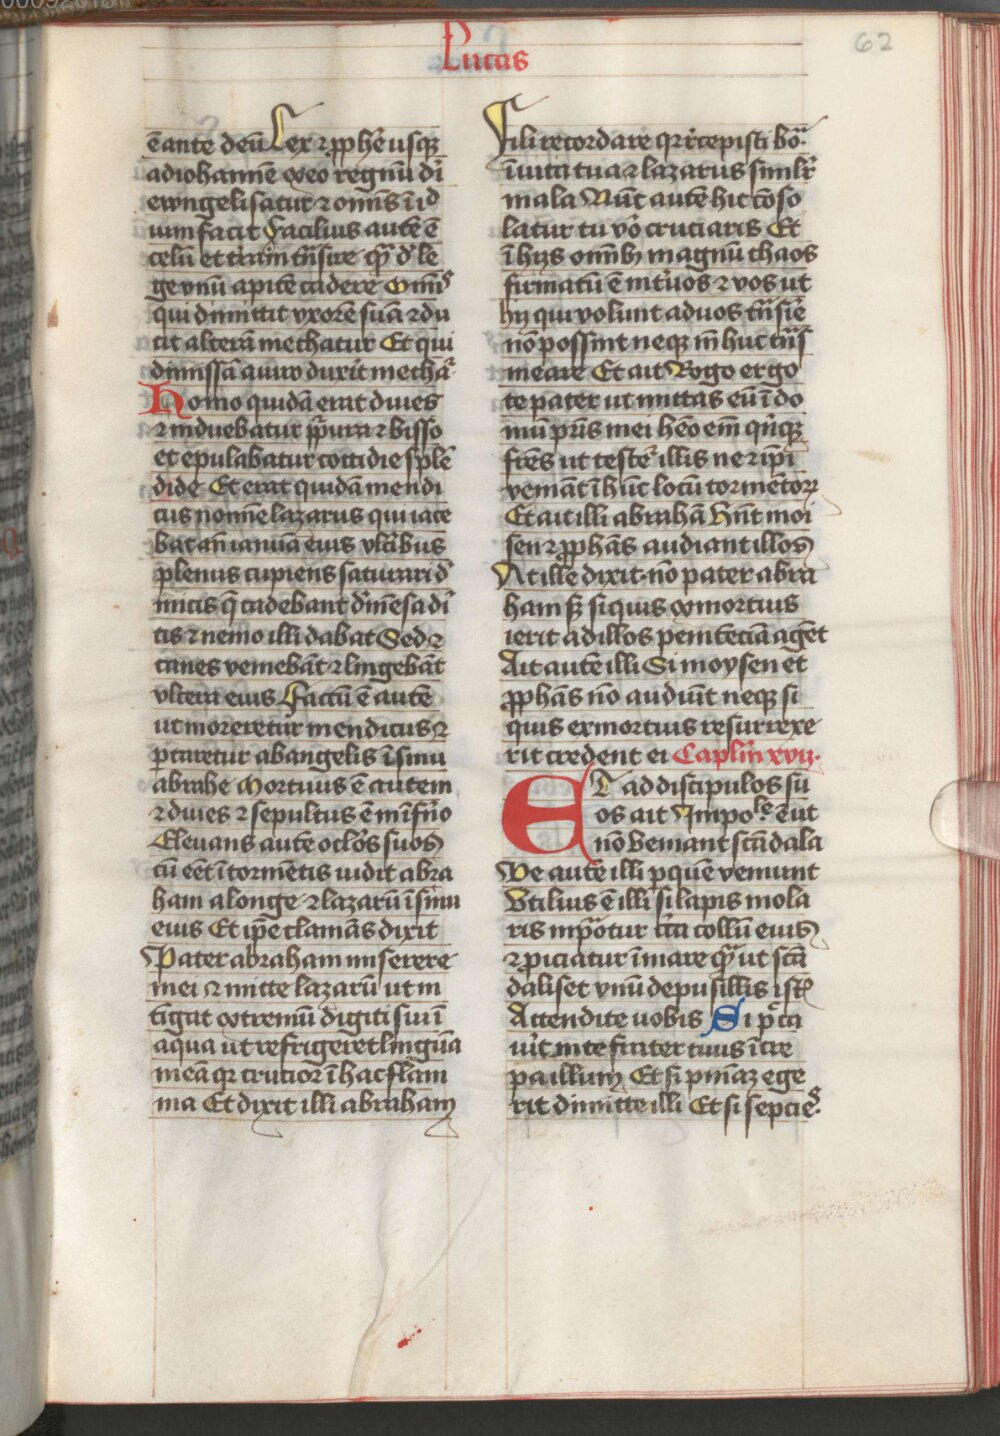 Lucas
62
ē ante deū Lex ⁊ ꝓph̄e usqꝫ
ad iohannē ex eo regnū dī
ewngelisatur ⁊ om̄s ī id
uim facit Facilius autē ē
celū et terrā trāsire quā de le
ge vnū apicē cadere Omīs
qui dimittit vxorē suā ⁊ du
cit alterā mechatur Et qui
dimissā a viro duxit mechaᷣ
Homo quidā erat diues
⁊ induebatur ꝑpura ⁊ bisso
et epulabatur cottidie splē
dide Et erat quidā mendi
cus nomīe lazarus qui iace
bat an̄ ianuā eius vlcībus
plenus cupiens saturari d̄
micis q̄ cadebant d̄ mēsa dī
tis ⁊ nemo illi dabat Sed ⁊
canes veniebāt ⁊ lingebāt
vlcera eius Factū ē autē
ut moreretur mendicus ⁊
ꝑtaretur ab angelis ī sinu
abrahe Mortuus ē autem
⁊ diues ⁊ sepultus ē in īfn̄o
Eleuans autē oclōs suos
cū eēt ī tormētis uidit abra
ham a longe ⁊ lazarū ī sinu
eius Et ip̄e clamās dixit
Pater abraham miserere
mei ⁊ mitte lazarū ut in
tigat extremū digiti sui ī
aqua ut refrigeret linguā
meā qꝛ crucior ī hac flam
ma Et dixit illi abraham
Fili recordare qꝛ recepisti boᷓ
ī uita tua ⁊ lazarus simlr̄
mala Nūc autē hic cōso
latur tu vō cruciaris Et
ī hijs omībꝫ magnū chaos
firmatū ē int̄ uos ⁊ vos ut
hij qui volunt ad vos trāsire
nō possint neqꝫ īn huc trās
meare Et ait Rogo ergo
te pater ut mittas eū ī do
mū pr̄is mei heō em̄ qn̄qꝫ
fr̄es ut testeᷣ illis ne ⁊ ip̄i
veniāt ī hūc locū tormētoꝝ
Et ait illi abrahā Hn̄t moi
sen ⁊ ꝓphās audiant illos
At ille dixit nō pater abra
ham sꝫ si quis ex mortuis
ierit ad illos penitēciā agēt
Ait autē illi Si moysen et
ꝓphās nō audiūt neqꝫ si
quis ex mortuis resurrexe
rit credent ei Caplm̄ xvij.
ET ad discipulos su
os ait Impole ē ut
nō veniant scādala
Ve autē illi ꝑ quē veniunt
Vtilius ē illi si lapis mola
ris inpōatur circa collū eius
⁊ ꝓiciatur ī mare quā ut scā
daliset vnū de pusillis istꝭ
Attendite uobis Si pecca
uīt in te frater tuus īcre
pa illum Et si pniāꝫ ege
rit dimitte illi Et si septies